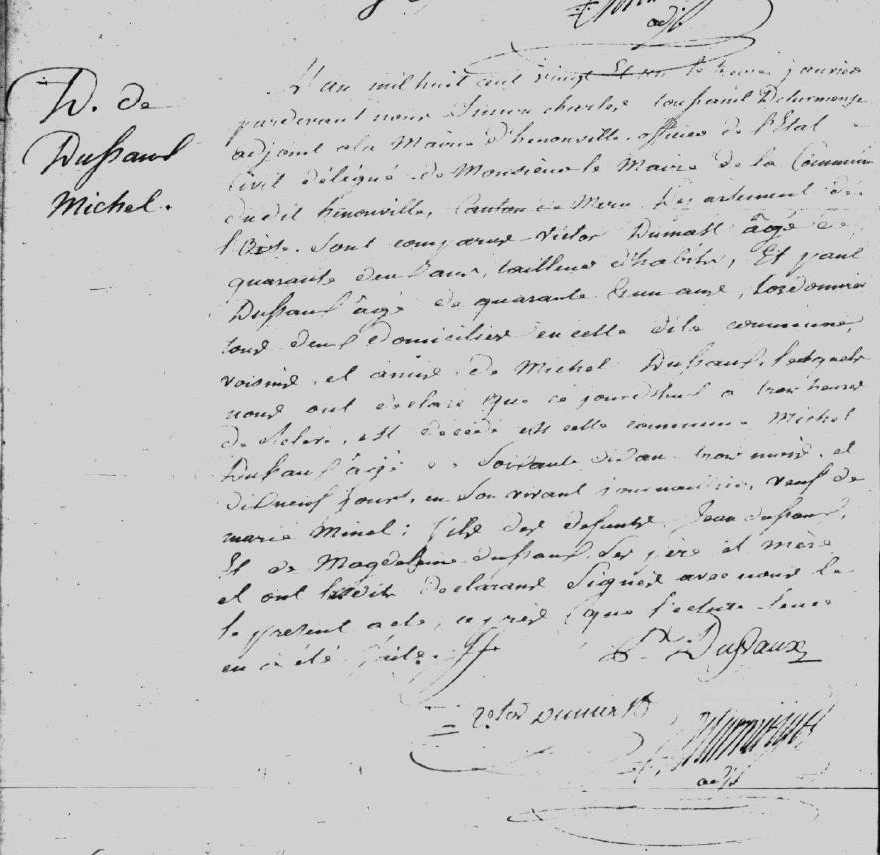 adjt
D. de
Dussaux
Michel.
L'an mil huit cent vingt Et un le treize janvier
pardevant nous Simon charles toussaint Delormenge
adjoint ala Mairie d'henonville officier de l'Etat
Civil délégué de Monsieur le Maire de la Commune
dudit henonville, Canton de Meru Departement de
l'Oise. Sont comparus Victor Dumast âgé de
quarante deux ans, tailleur d'habits, Et paul
Dussaux âgé de quarante Et un ans, Cordonnier
tous deux domiciliés en cette dite commune,
voisins et amis de Michel Dussaux, lesquels
nous ont declaré que ce jourd'huy a trois heures
de relevé, est decédé en cette commune Michel
Dussaux âgé de Soixante dix an trois mois et
dixneuf jours, en Son vivant journaillier, veuf de
marie Minel ; fils des defunts Jean dussaux,
Et de Magdeleine dussaux Ses père et mère
et ont lesdits declarans Signés avec nous le
le present acte, après que lecture leur
en a été faite.
Dussaux
victor Dumast
adjt